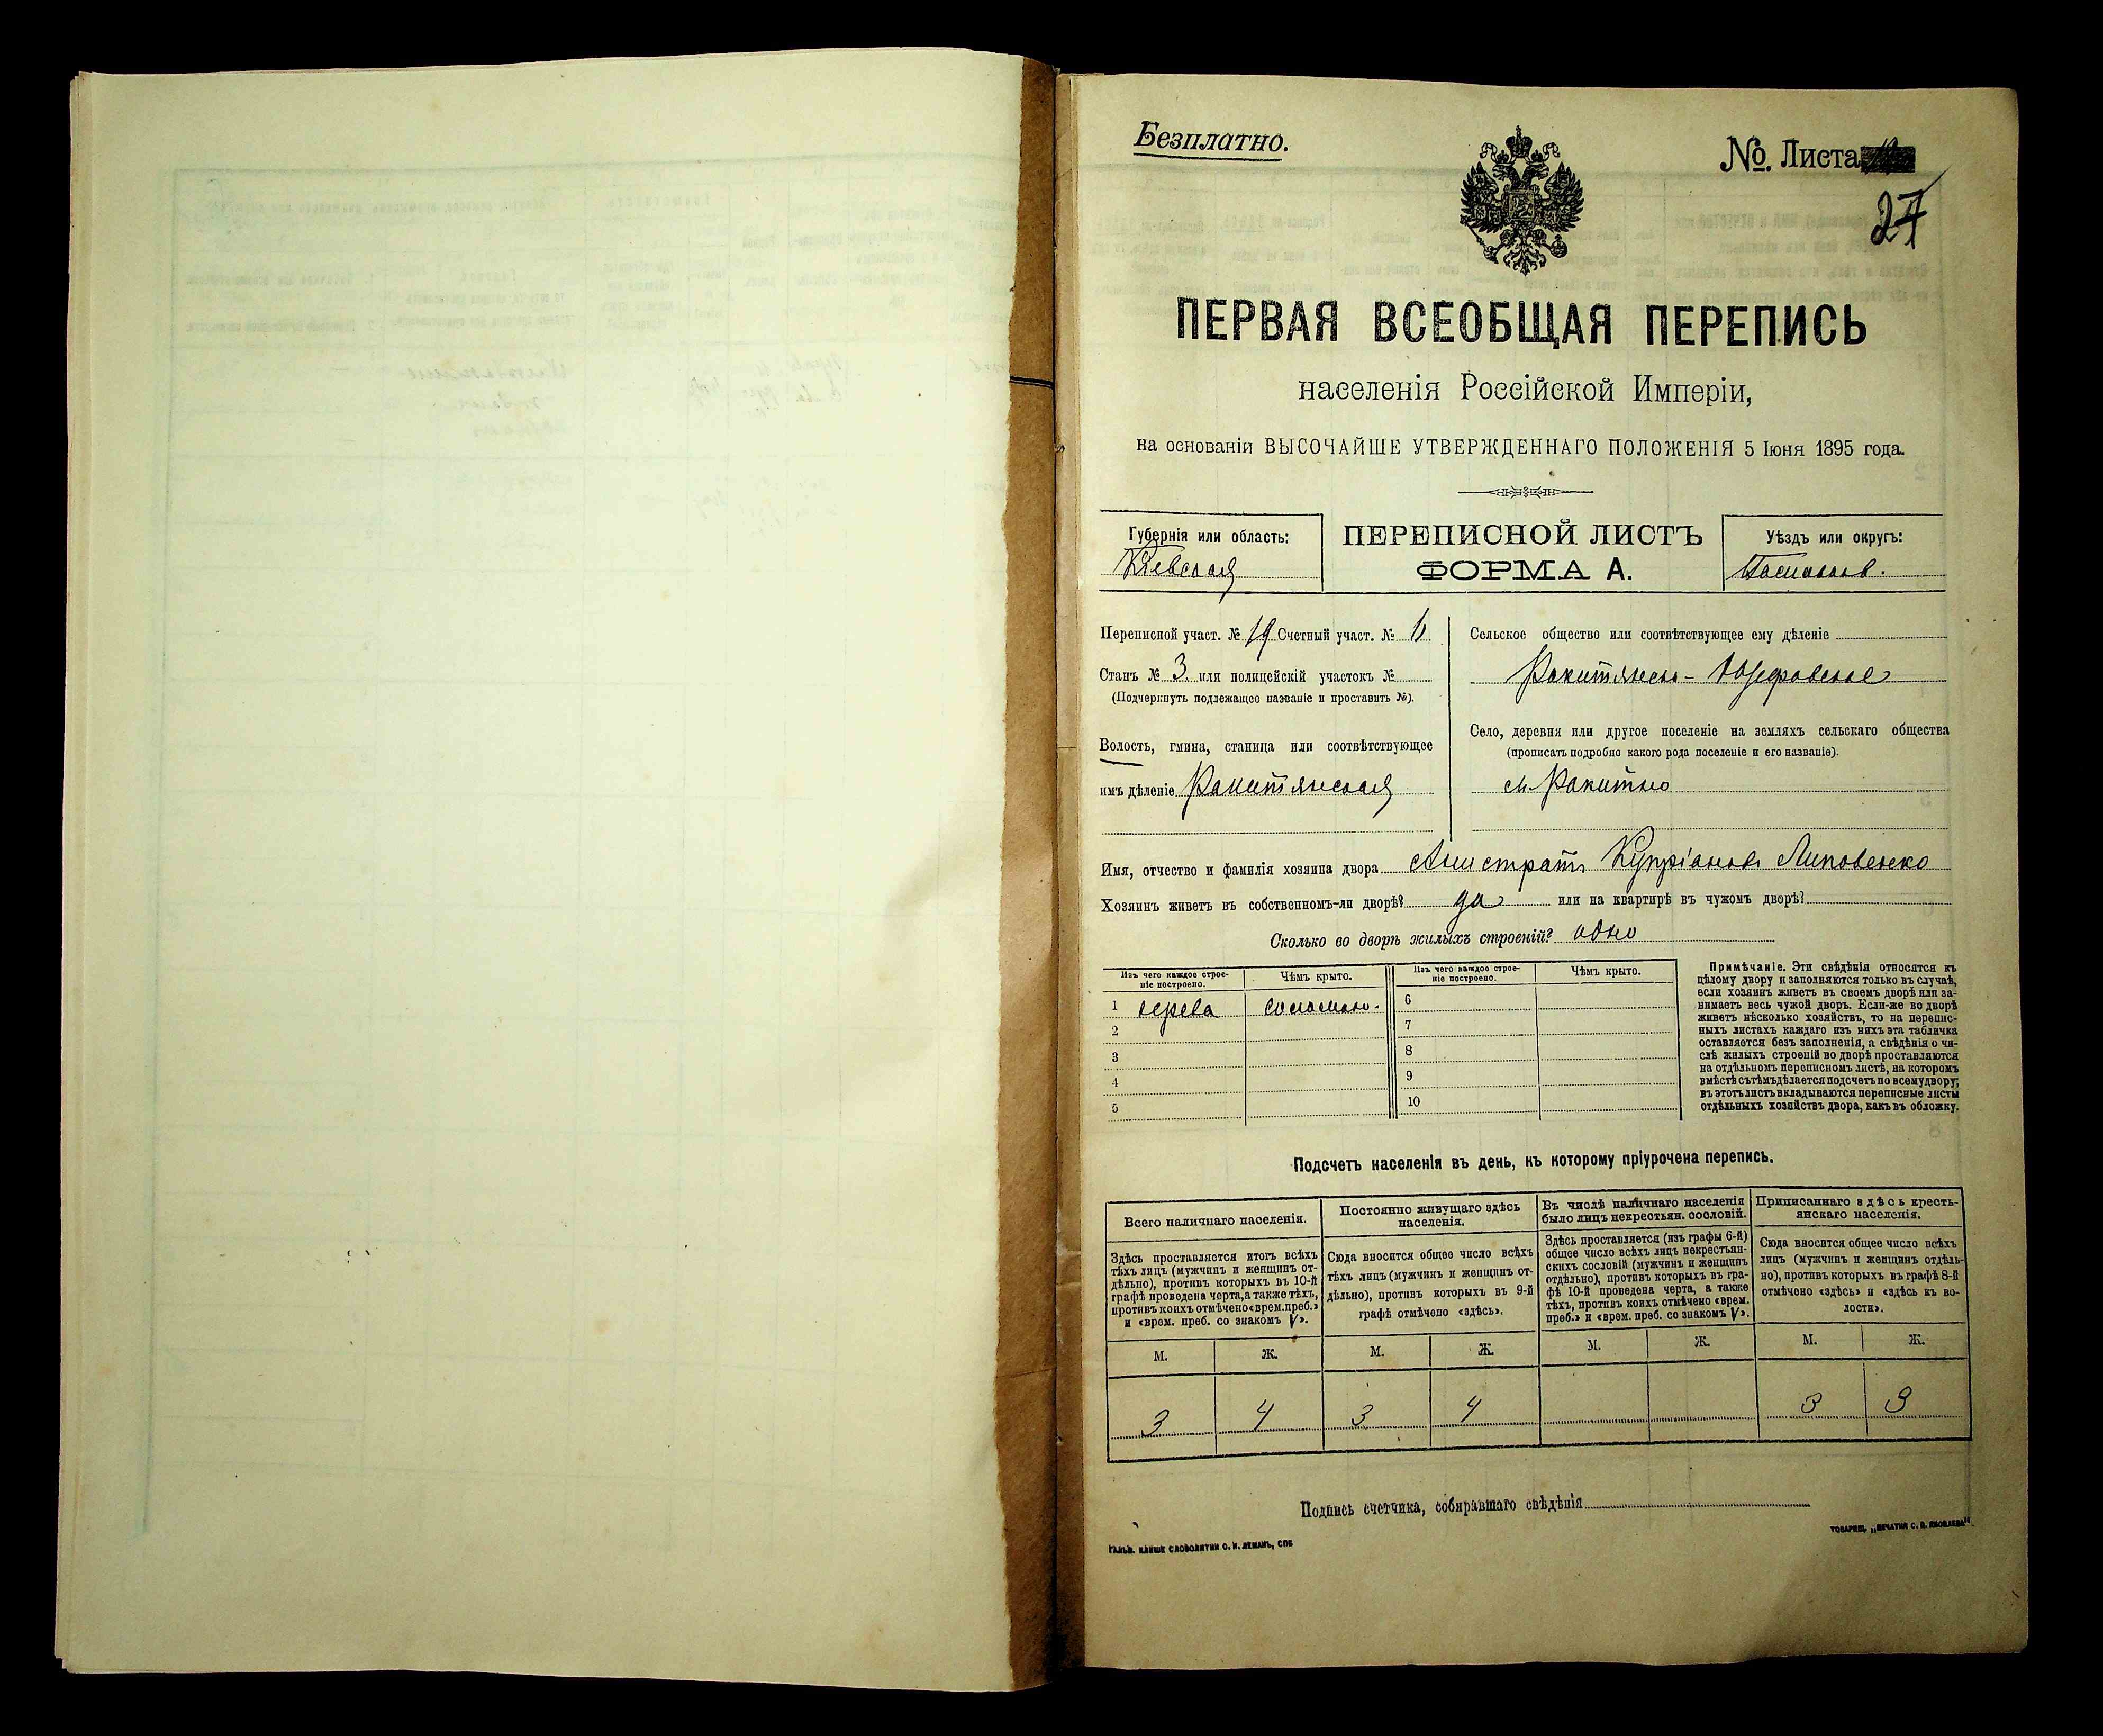 Безплатно.
№. Листа
27
ПЕРВАЯ ВСЕОБЩАЯ ПЕРЕПИСЬ
населенія Россійской Имперіи,
на основаніи ВЫСОЧАЙШЕ УТВЕРЖДЕННАГО ПОЛОЖЕНІЯ 5 Іюня 1895 года.
Губернія или область:
Кіевская
ПЕРЕПИСНОЙ ЛИСТЪ
ФОРМА А.
Уѣздъ или округъ:
Переписной участ. № 19 Счетный участ. №
Станъ № 3. или полицейскій участокъ №
(Подчеркнуть подлежащее названіе и проставить №).
Волость, гмина, станица или соотвѣтствующее
имъ дѣленіе Ракитянская
Сельское общество или соотвѣтствующее ему дѣленіе
Ракитянско-
Село, деревня или другое поселеніе на земляхъ сельскаго общества
(прописать подробно какого рода поселеніе и его названіе).
м. Ракитно
Имя, отчество и фамилія хозяина двора Купріановъ Липовенко
Хозяинъ живетъ въ собственномъ-ли дворѣ? да или на квартирѣ въ чужомъ дворѣ?
Сколько во дворѣ жилыхъ строеній? одно
Изъ чего каждое строе-
ніе построено.
Чѣмъ крыто.
1 дерева соломою.
2
3
4
5
Изъ чего каждое строе-
ніе построено.
Чѣмъ крыто.
6
7
8
9
10
Примѣчаніе. Эти свѣдѣнія относятся къ
цѣлому двору и заполняются только въ случаѣ,
если хозяинъ живетъ въ своемъ дворѣ или за-
нимаетъ весь чужой дворъ. Если-же во дворѣ
живетъ нѣсколько хозяйствъ, то на перепис-
ныхъ листахъ каждаго изъ нихъ эта табличка
оставляется безъ заполненія, а свѣдѣнія о чи-
слѣ жилыхъ строеній во дворѣ проставляются
на отдѣльномъ переписномъ листѣ, на которомъ
вмѣстѣ съ тѣмъ дѣлается подсчетъ по всему двору;
въ этотъ листъ вкладываются переписные листы
отдѣльныхъ хозяйствъ двора, какъ въ обложку.
Подсчетъ населенія въ день, къ которому пріурочена перепись.
Всего наличнаго населенія.
Здѣсь проставляется итогъ всѣхъ
тѣхъ лицъ (мужчинъ и женщинъ от-
дѣльно), противъ которыхъ въ 10-й
графѣ проведена черта, а также тѣхъ,
противъ коихъ отмѣчено «врем. преб.»
и «врем. преб. со знакомъ V».
М. Ж.
3 4
Постоянно живущаго здѣсь
населенія.
Сюда вносится общее число всѣхъ
тѣхъ лицъ (мужчинъ и женщинъ от-
дѣльно), противъ которыхъ въ 9-й
графѣ отмѣчено «здѣсь».
М. Ж.
3 4
Въ числѣ наличнаго населенія
было лицъ некрестьян. сословій.
Здѣсь проставляется (изъ графы 6-й)
общее число всѣхъ лицъ некрестьян-
скихъ сословій (мужчинъ и женщинъ
отдѣльно), противъ которыхъ въ гра-
фѣ 10-й проведена черта, а также
тѣхъ, противъ коихъ отмѣчено «врем.
преб.» и «врем. преб. со знакомъ V».
М. Ж.
Приписаннаго здѣсь кресть-
янскаго населенія.
Сюда вносится общее число всѣхъ
лицъ (мужчинъ и женщинъ отдѣль-
но), противъ которыхъ въ графѣ 8-й
отмѣчено «здѣсь» и «здѣсь къ во-
лости».
М. Ж.
3 3
Подпись счетчика, собиравшаго свѣдѣнія
ГАЛЬВ. КЛИШЕ СЛОВОЛИТНИ О. И. ЛЕМАНЪ, СПБ
ТОВАРИЩ. „ПЕЧАТНЯ С. П. ЯКОВЛЕВА".